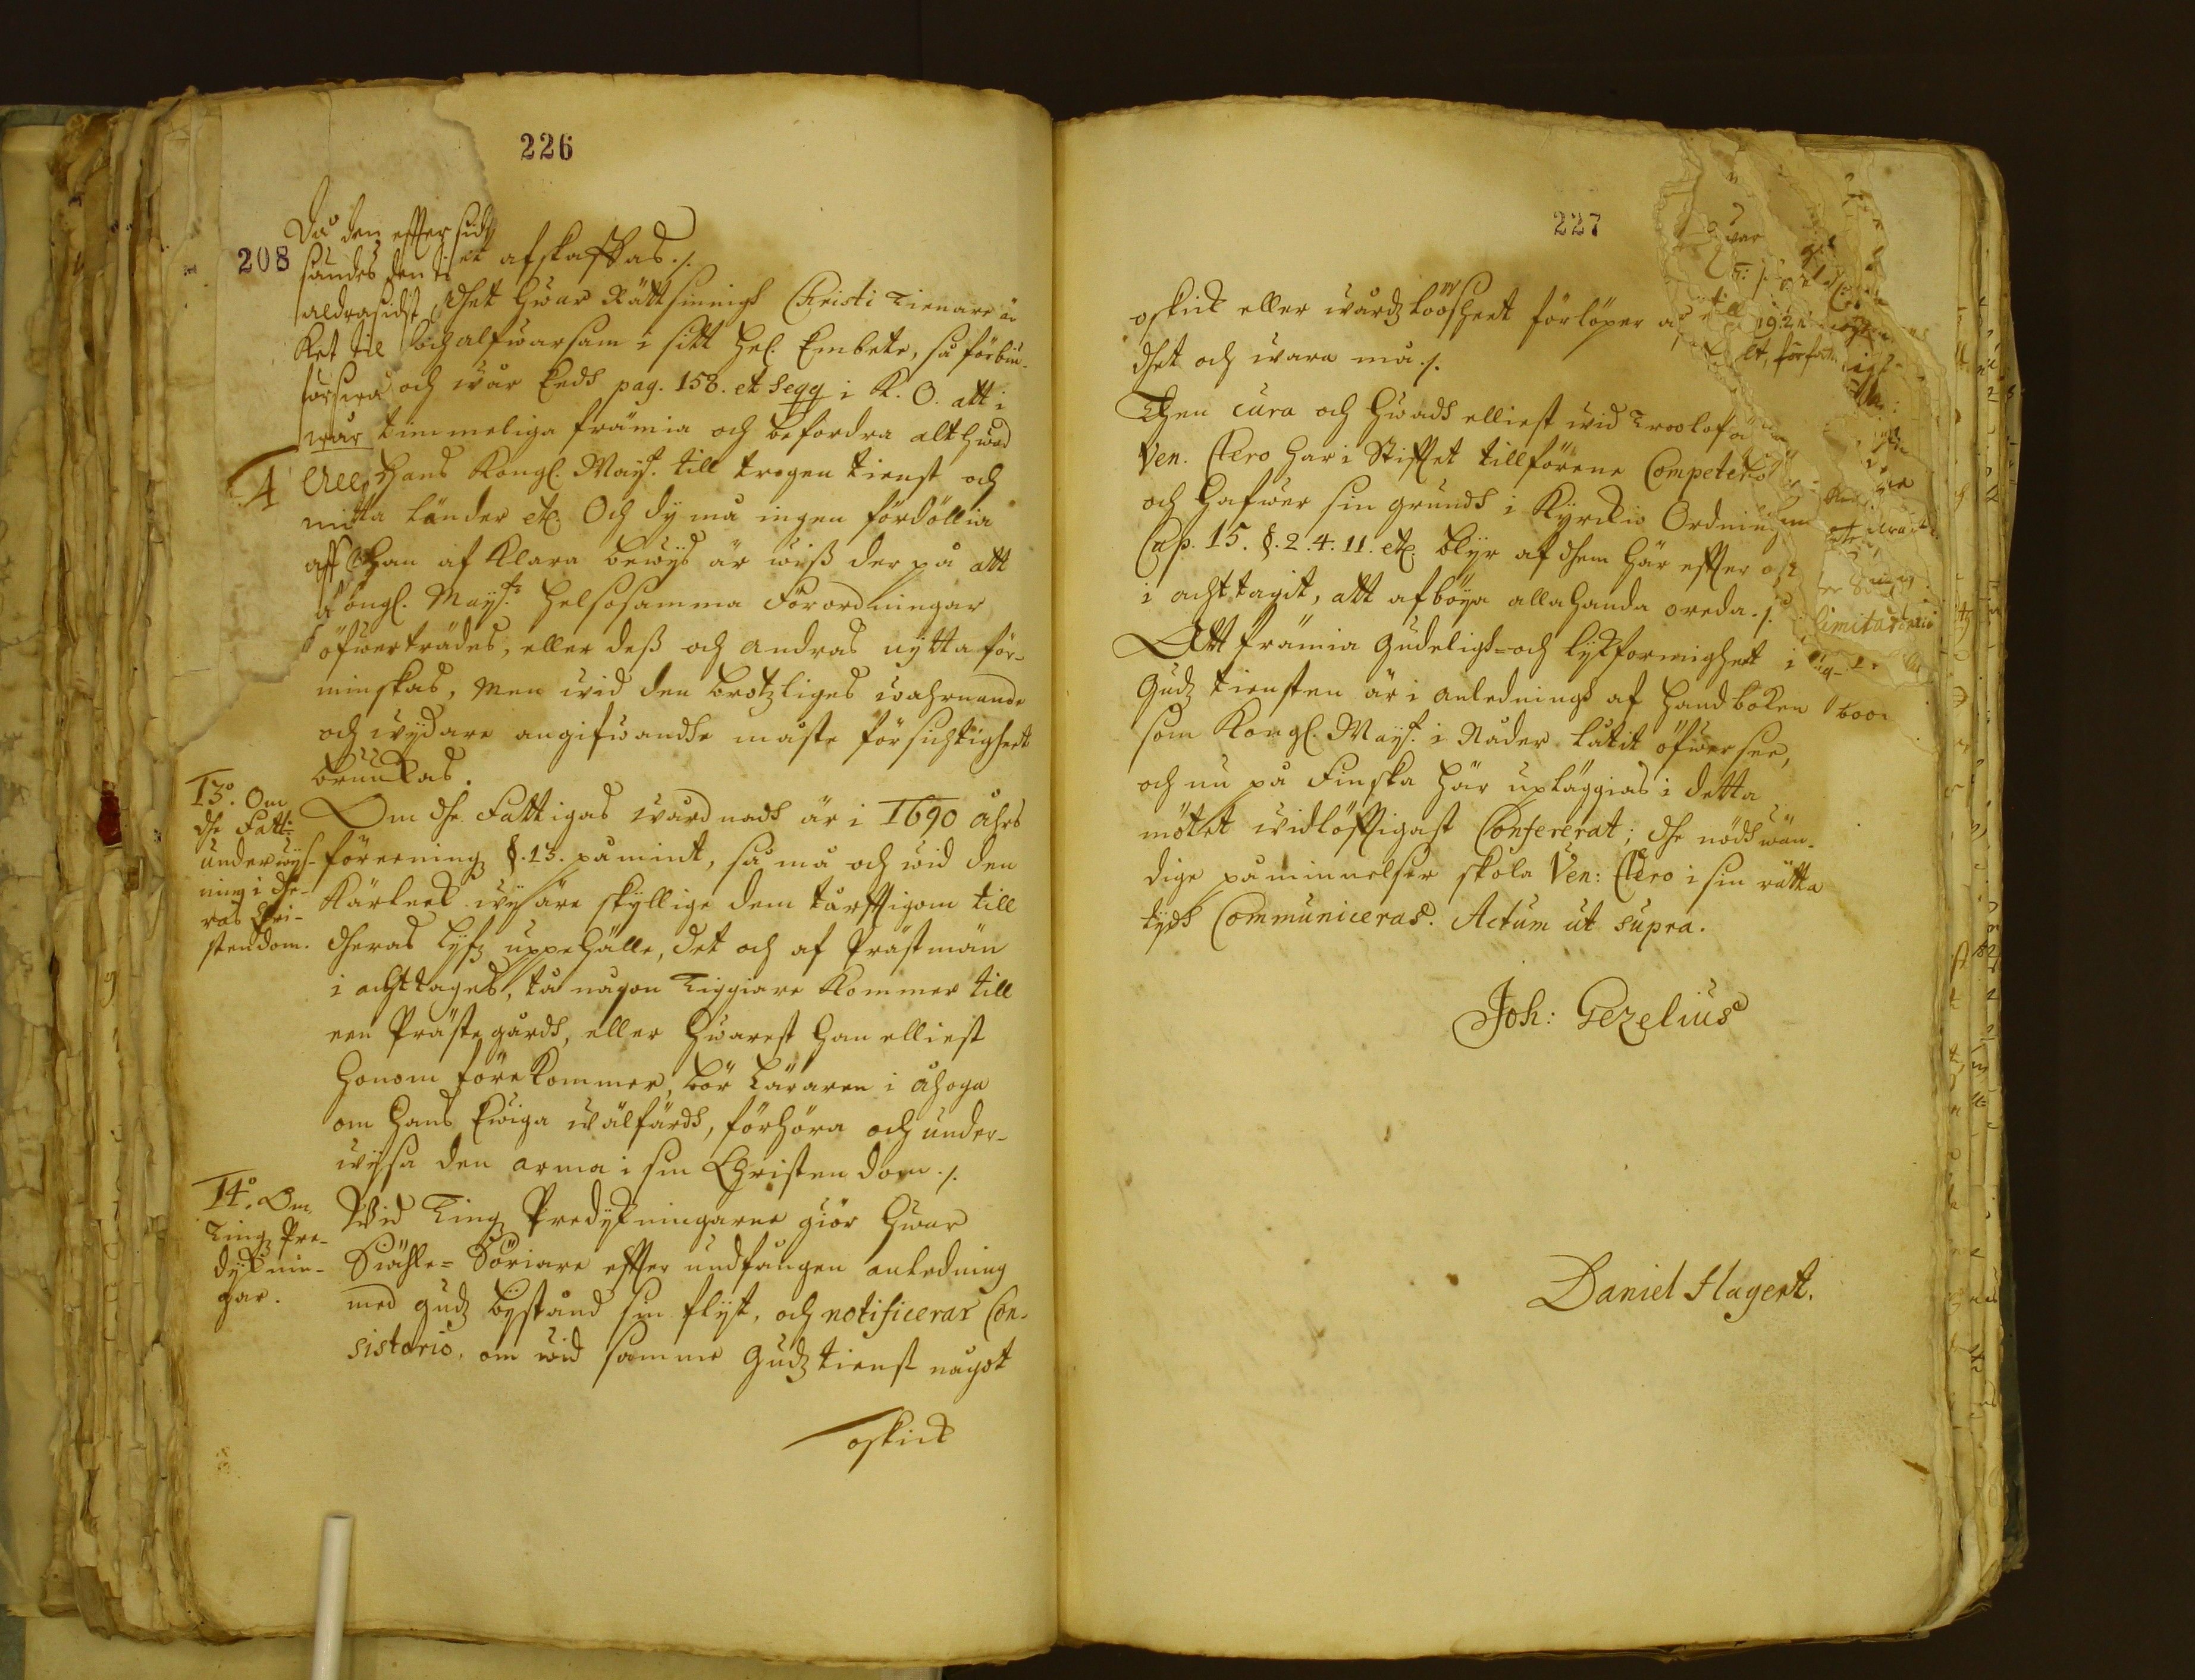 226
208
Då den effter sidst
sändes den ti
aldrasidst
ket til
försera
war
Alle
nit
aff
et afskaffas ./.
dhet hwar Rättsinnigh Christi Tienare är
och alfwarsam i sitt hel. Embete, så förbin-
och wår Eedh pag. 158. et seqq i K. O. att i
timmeliga främia och befordra alt hwad
Hans Kongl. Mayt. till trogen tienst och
ta länder etc. Och dy må ingen fördöllia
han af klara bewijs är wiss der på att
Kongl. Maytz. helsosamma Förordningar
öfwerträdes, eller dess och andras nytta för-
minskas, Men wid den brotzliges wahrnande
och wydare angifwandhe måste försichtigheet
bruukas.
13o. Om
dhe Fatti-
underwys-
ning i dhe-
ras Chri-
stendom.
Om dhe Fattigas wårdnadh är i 1690 åhrs
föreening §. 13. påmint, så må och wid den
Kärleek wij äre skyllige dem tarfftigom till
dheras lyfz uppehälle, det och af Prästmän
i acht tages, tå någon Tiggiare kommer till
een Prästegårdh, eller hwarest han elliest
honom förekommer, bör Läraren i åhoga
om hans Ewiga wälfärdh, förhöra och under-
wijsa den arma i sin Christendom ./.
14o. Om
Ting Pre-
dyknin-
gar.
Wid Tingz Predykningarne giör hwar
Siähle-Söriare effter undfången anledning
med Gudz bystånd sin flijt, och notificerar Con-
sistorio, om wid samme Gudztienst något
oskick
227
oskick eller wårdzlöösheet förlöper
dhet och wara må ./.
Then cura och hwadh elliest wid Troolof
Ven. Clero har i Stifftet tillförene Competerat
och hafwer sin grundh i Kyrckio Ordning
Cap. 15. §. 2. 4. 11. etc. blyr af dhem här effter
i acht tagit, att afböya allahanda oreda ./.
limitation
Att främia Gudeligh- och lykformigheet i
Gudz tiensten är i anledningh af Handboken
som Kongl. Mayt. i Nåder låtit öfwersee,
och nu på Finska här upläggias i detta
mötet widlöfftigast Confererat; dhe nödhwän-
dige påminnelser skola Ven: Clero i sin rätta
tydh Communiceras. Actum ut supra.
Joh: Gezelius
Daniel Hagert.